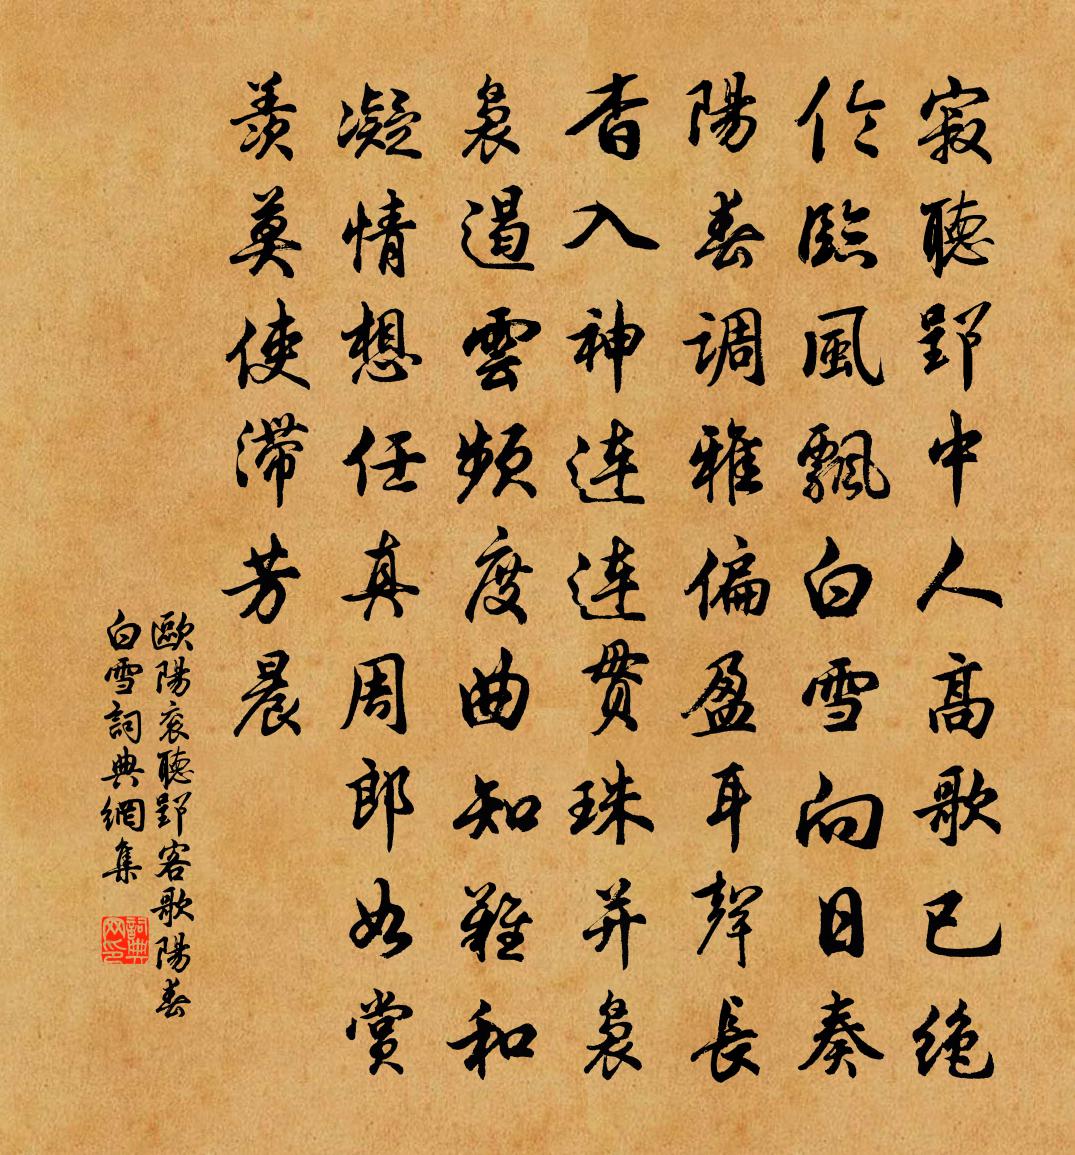 寂聽郢中人高歌已絕
伦臨風飄白雪向日奏
陽春調雅偏盈耳聲長
杳入神連連貫珠并裊
裊遏雲頻度曲知難和
凝情想任真周郎如賞
羨莫使滯芳晨
歐陽衮聽郢客歌陽春
白雪詞典網集
詞典
网印